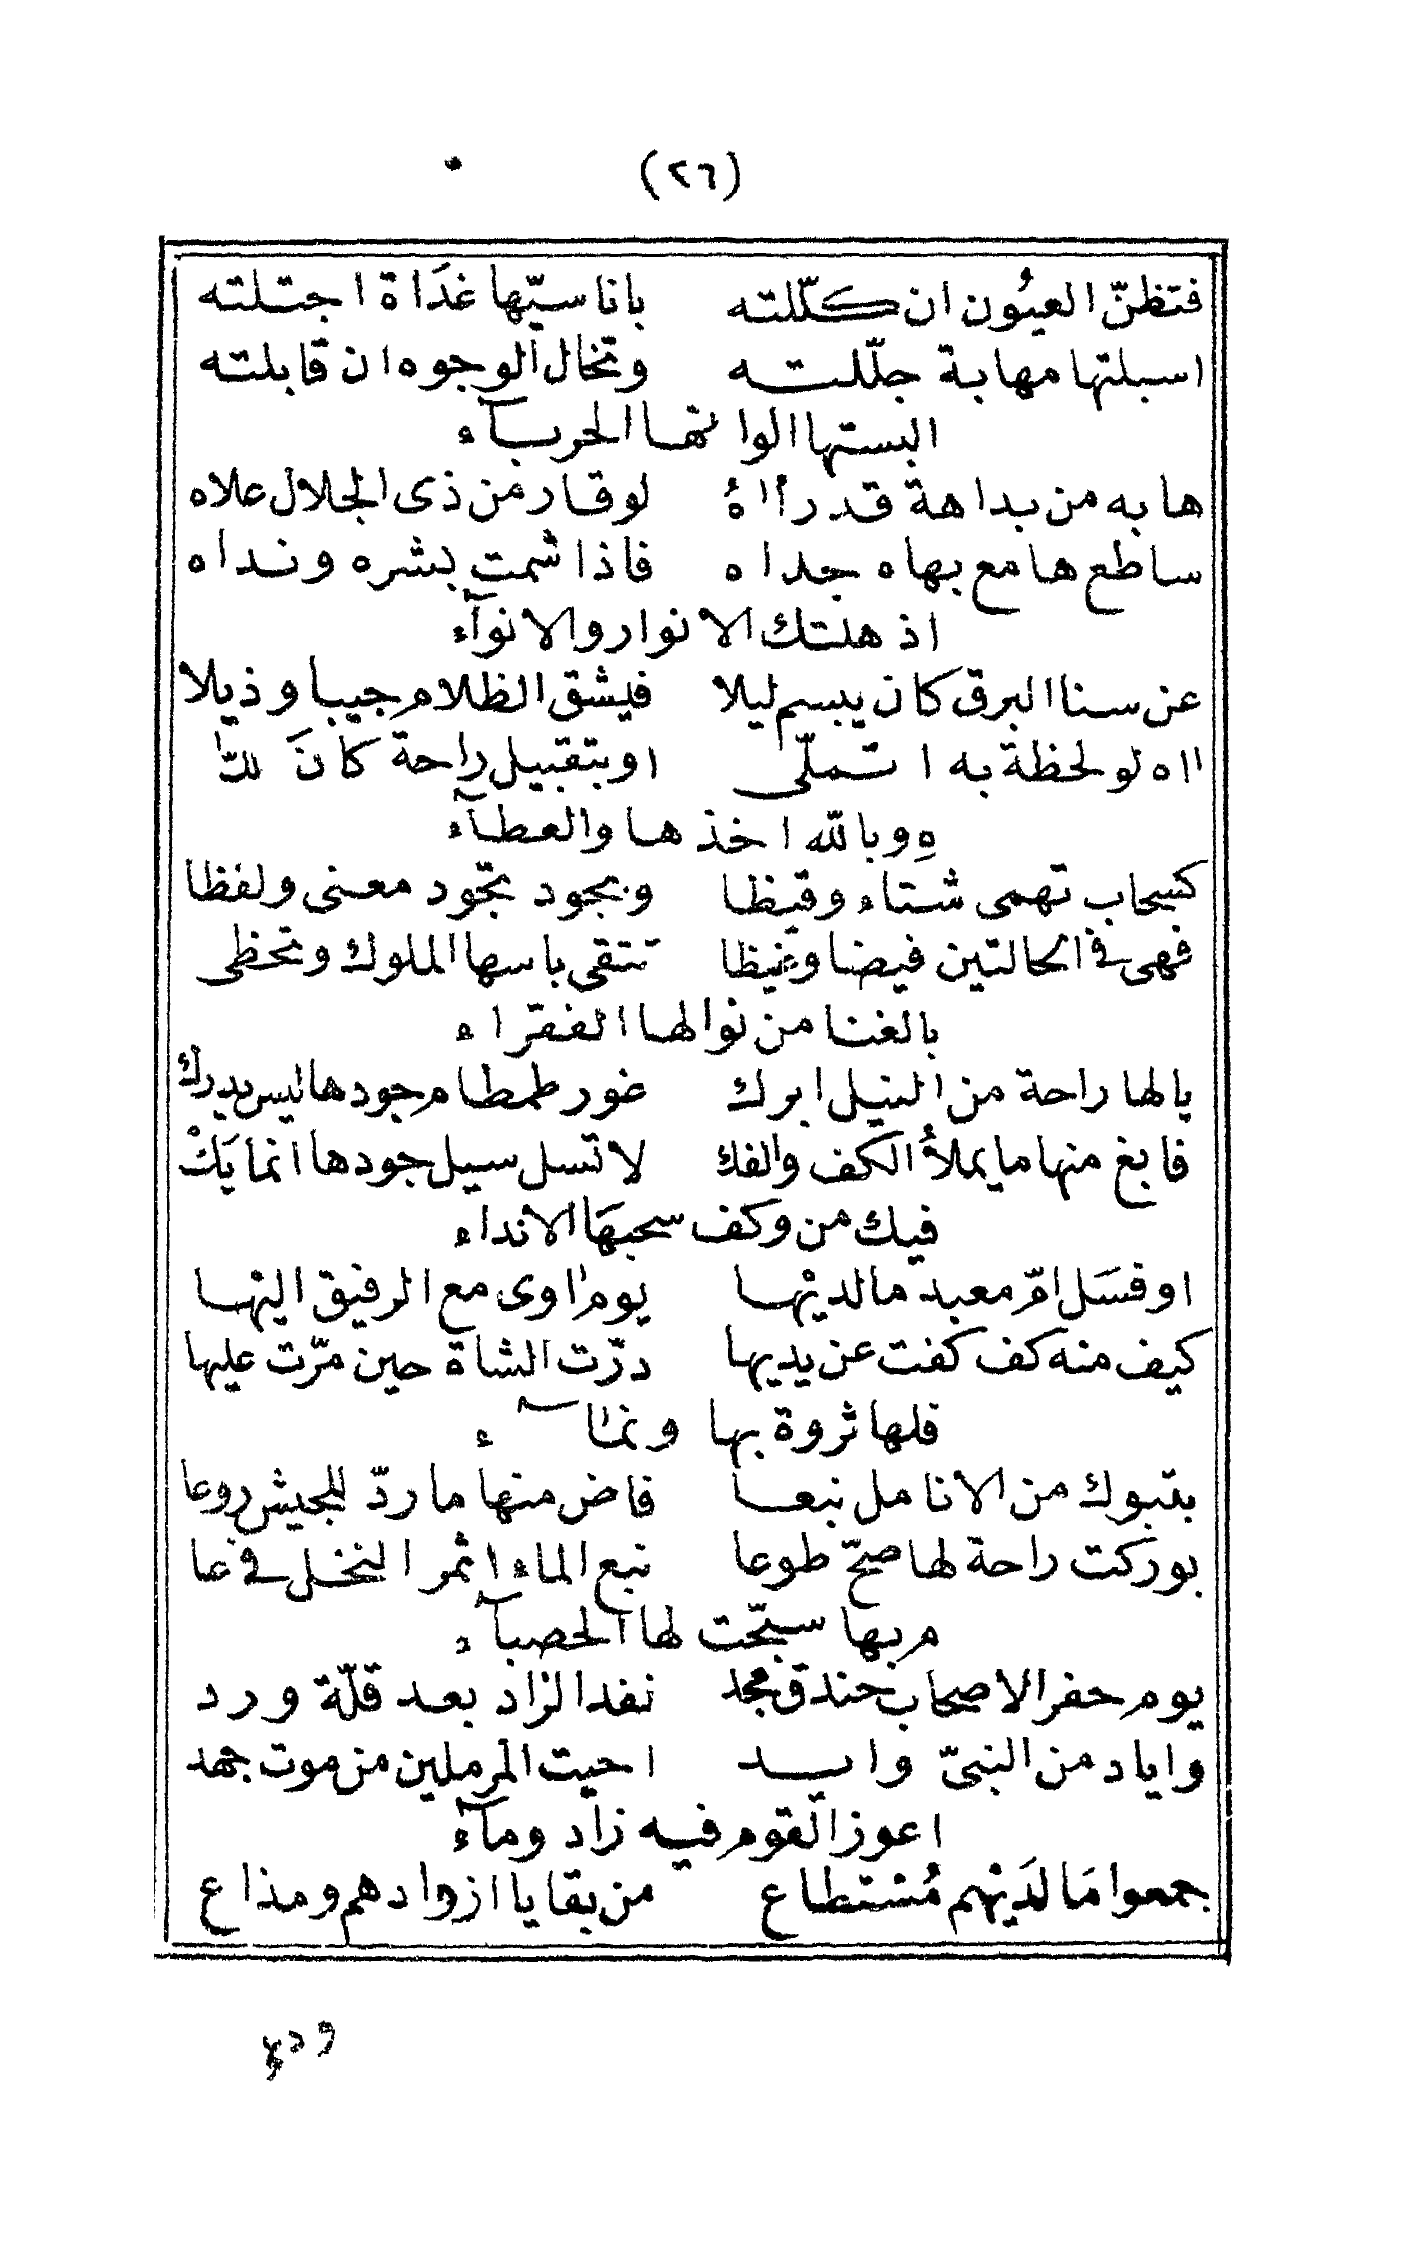 (٢٦)
فتظنّ العيُون ان كلّلته بانا سيّها غدَاة اجتلته
اسبلتها مهابة جلّلته وتخال الوجوه ان قابلته
البستها الوانها الحربآء
هابه من بداهة قدرأاهُ لوقار من ذى الجلال علاه
ساطع هامع بهاه جداه فاذا شمت بشره ونداه
اذهلتك الانوار والانوآء
عن سنا البرق كان يبسم ليلا فيشق الظلام جيبا وذيلا
ااه لو لحظة به اتملّى او بتقبيل راحة كانَ لله
هِ وبالله اخذها والعطآء
كسحاب تهمى شتاء وقيظا وبجود تجّود معنى ولفظا
فهى فى الحالتين فيضا وغيظا تتقى باسها الملوك وتحظى
بالغنا من نوالها الفقراء
يالها راحة من النيل ابرك غور طمطام جودها ليس يدرك
فابغ منها ما يملأُ الكف والفك لا تسل سيل جودها انما يَكْ
فيك من وكف سحبهَا الانداء
او فسَل امّ معبد ما لديْها يوم اوى مع الرفيق اليْها
كيف منه كف كفت عن يديها درّت الشاة حين مرّت عليها
فلها ثروة بها ونمآء
بتبوك من الانامل نبعا فاض منها ما ردّ للجيش روعا
بوركت راحة لها صحّ طوعا نبع الماء اثمر النخل فى عا
م بها سبّحت لها الحصبآء
يوم حفر الاصحاب خندق مجد نفد الزاد بعد قلّة ورد
واياد من النبىّ وايد احيت المرملين من موت جهد
اعوز القوم فيه زاد ومآء
جمعوا مَا لدَيْهم مُسْتطاع من بقايا ازوادهم ومذاع